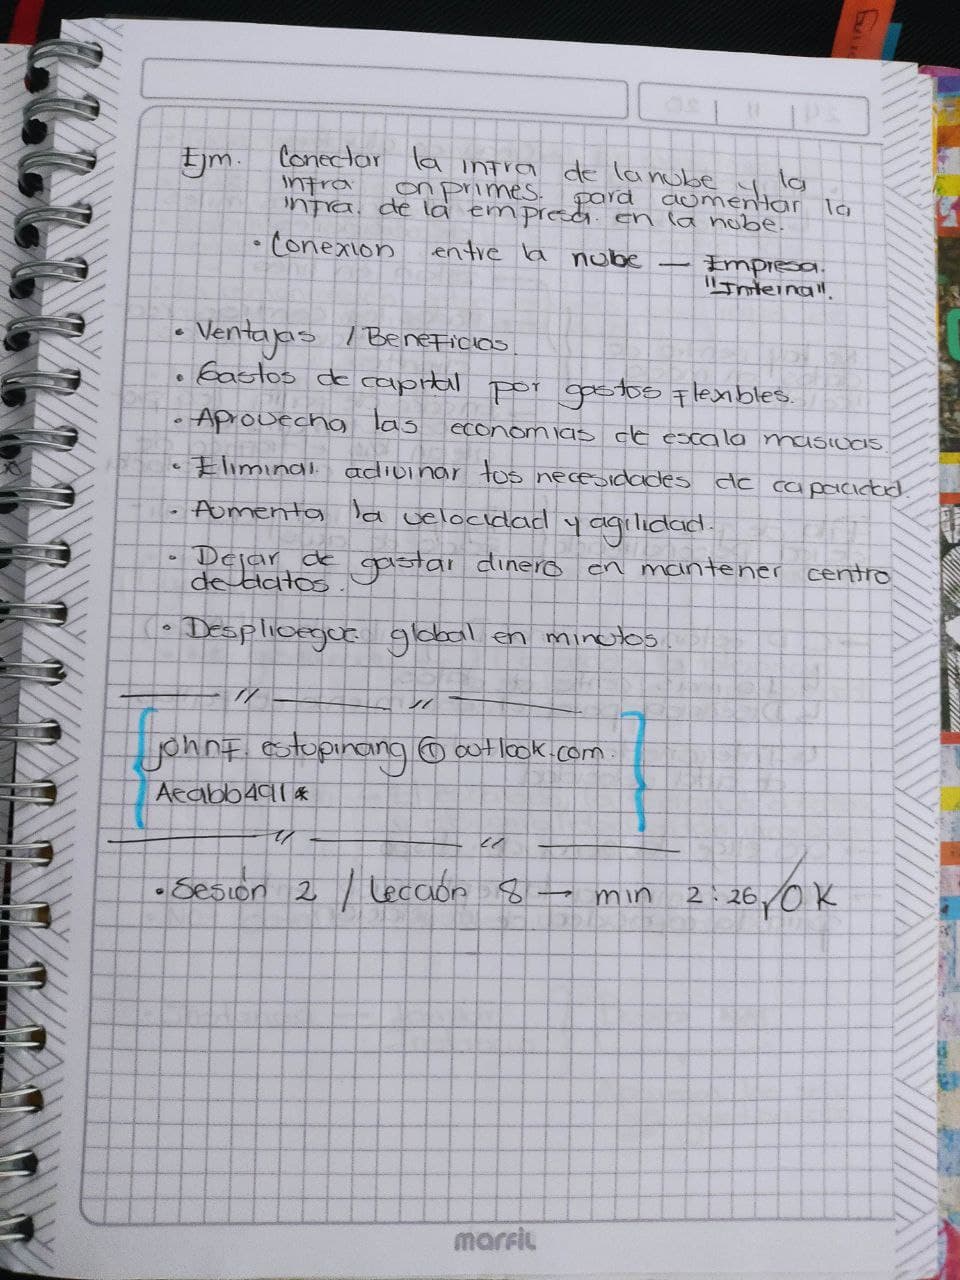 Ejm. Conectar la infra de la nube y la
infra onprimes. para aumentar la
infra. de la empresa. en la nube.
• Conexion entre la nube — Empresa.
"Interna".
• Ventajas / Beneficios.
• Gastos de capital por gastos flexibles.
• Aprovecha las economias de escala masivas.
• Eliminar adivinar tus necesidades de capacidad.
• Aumenta la velocidad y agilidad.
• Dejar de gastar dinero en mantener centro
de datos.
• global en minutos.
johnf.estupinang@outlook.com.
Acabb491*
• Sesión 2 / Lección 8 → min 2:26, / OK
marfil